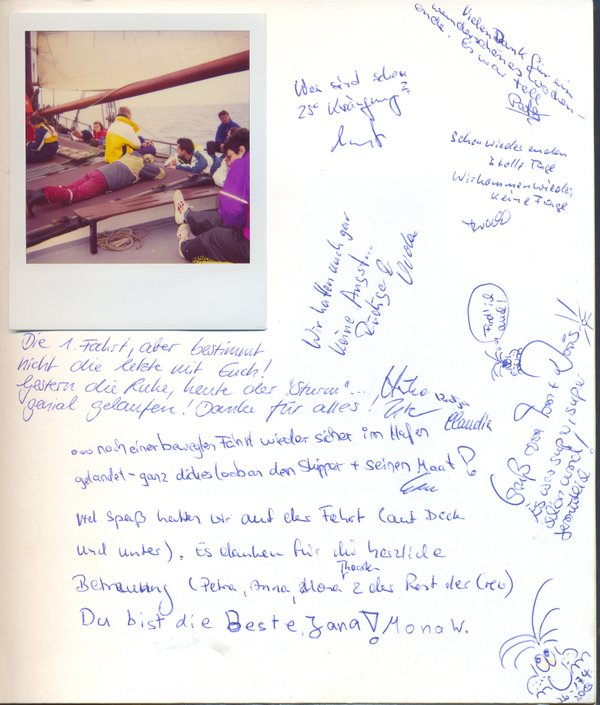 Vielen Dank für ein
wunderschönes Wochen-
ende. Es war toll
Wer sind schon
25° Krängung?
Schon wieder enden
3 tolle Tage
Wir kommen wieder,
keine Frage
Wir hatten auch gar
keine Angst...
Die 1. Fahrt, aber bestimmt
nicht die letzte mit Euch!
Gestern die Ruhe, heute der "Sturm"...,
genial gelaufen! Danke für alles!
Claudia
...nach einer bewegten Fahrt wieder sicher im Hafen
gelandet - ganz dickes Lob an den Skipper + seinen Maat!
Viel Spaß hatten wir auf der Fahrt (auf Deck
und unter). Es danken für die herzliche
Betreuung (Petra, Anna, Mona, Thorsten & der Rest der Crew)
Du bist die Beste, Jana! Mona W.
Es war super, super
schön und
gemütlich!